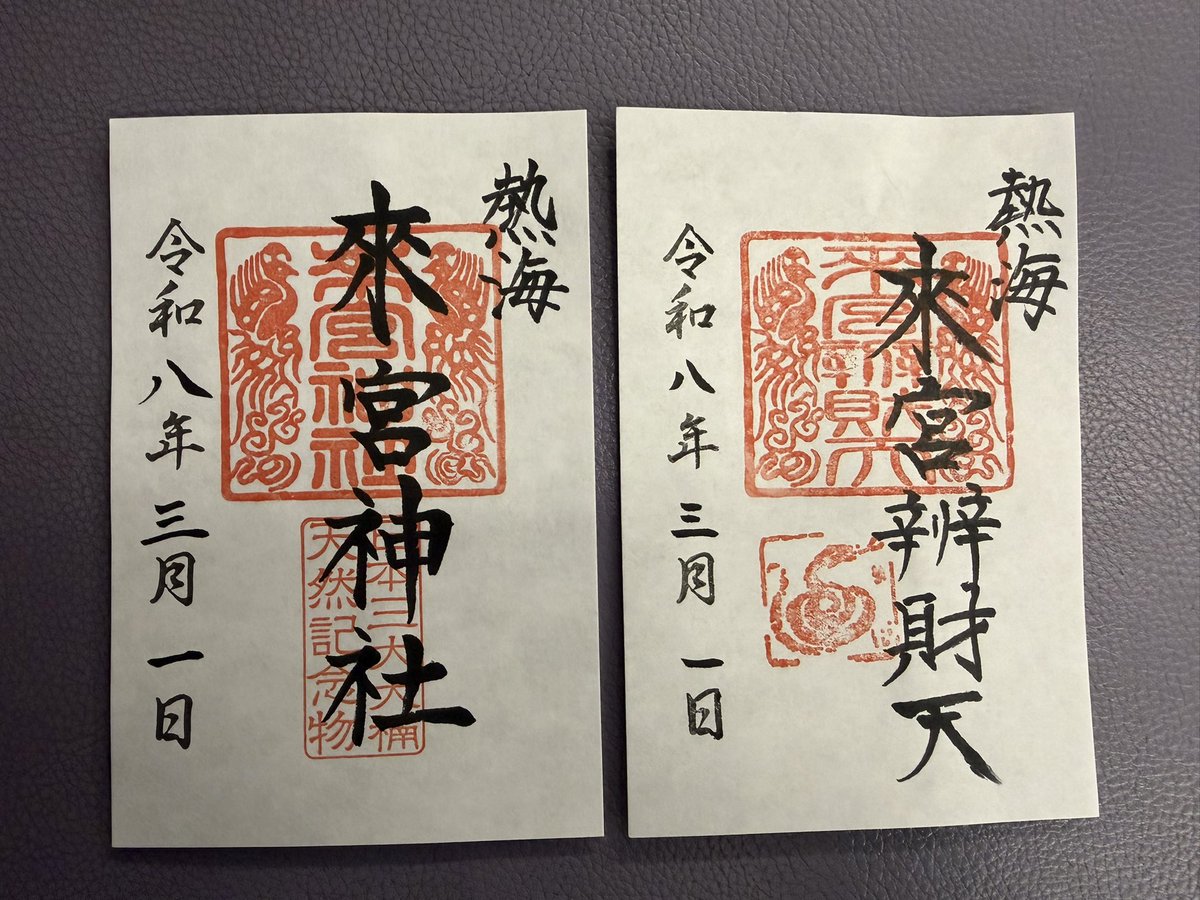 熱海
來宮神社
來宮神社
日本三大大楠
天然記念物
令和八年三月一日
熱海
來宮辨財天
令和八年三月一日